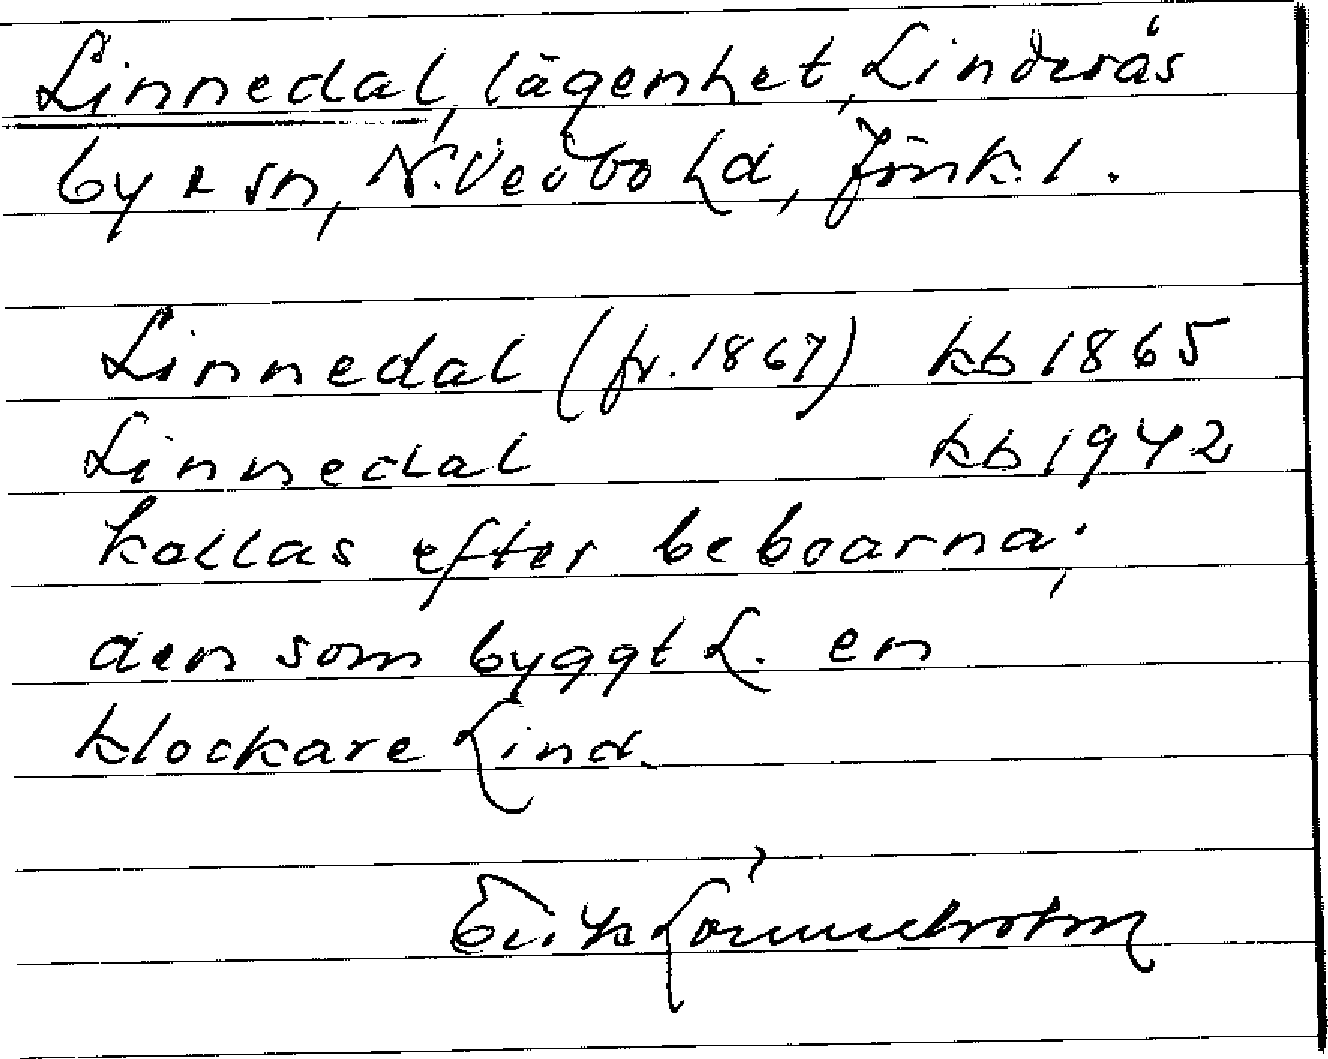 Linnedal, lägenhet, Linderås
by & sn, N. Vedbo hd, Jönk. l.
Linnedal (fr. 1867) kb 1865
Linnedal kb 1942
kallas efter beboarna;
den som byggt L. en
klockare Lind.
Erik Lönnerholm